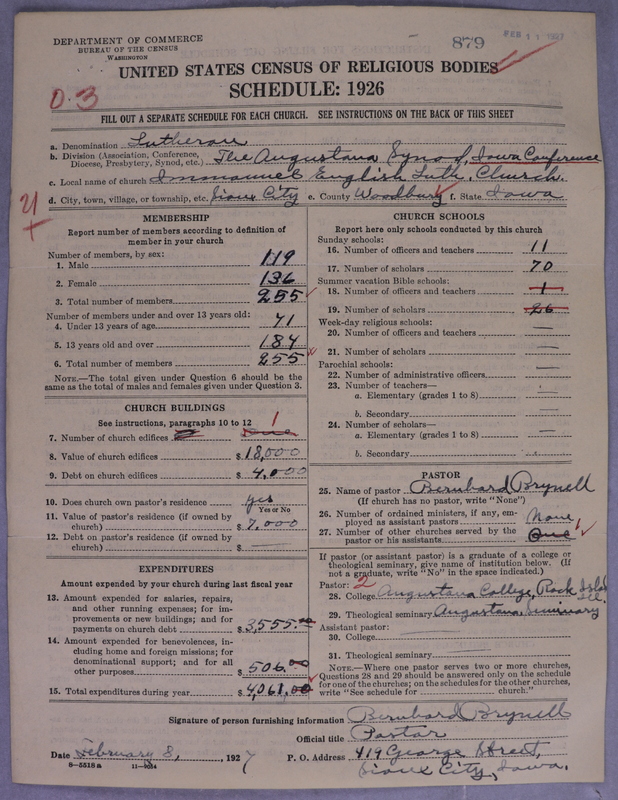 DEPARTMENT OF COMMERCE
BUREAU OF THE CENSUS
WASHINGTON
879
FEB 11 1927
UNITED STATES CENSUS OF RELIGIOUS BODIES
SCHEDULE: 1926
0.3
FILL OUT A SEPARATE SCHEDULE FOR EACH CHURCH. SEE INSTRUCTIONS ON THE BACK OF THIS SHEET
a. Denomination Lutheran
b. Division (Association, Conference, Diocese, Presbytery, Synod, etc.) The Augustana Synod, Iowa Conference
c. Local name of church Immanuel English Luth. Church.
d. City, town, village, or township, etc. Sioux City e. County Woodbury f. State Iowa
MEMBERSHIP
Report number of members according to definition of
member in your church
Number of members, by sex:
1. Male 119
2. Female 136
3. Total number of members 255
Number of members under and over 13 years old:
4. Under 13 years of age 71
5. 13 years old and over 184
6. Total number of members 255
NOTE.—The total given under Question 6 should be the
same as the total of males and females given under Question 3.
CHURCH BUILDINGS
See instructions, paragraphs 10 to 12
7. Number of church edifices One 1
8. Value of church edifices $18,000
9. Debt on church edifices $4,000
10. Does church own pastor's residence yes
Yes or No
11. Value of pastor's residence (if owned by
church) $7,000
12. Debt on pastor's residence (if owned by
church) $ —
EXPENDITURES
Amount expended by your church during last fiscal year
13. Amount expended for salaries, repairs,
and other running expenses; for im-
provements or new buildings; and for
payments on church debt $3,555.00
14. Amount expended for benevolences, in-
cluding home and foreign missions; for
denominational support; and for all
other purposes $506.00
15. Total expenditures during year $4,061.00
CHURCH SCHOOLS
Report here only schools conducted by this church
Sunday schools:
16. Number of officers and teachers 11
17. Number of scholars 70
Summer vacation Bible schools:
18. Number of officers and teachers 1
19. Number of scholars 26
Week-day religious schools:
20. Number of officers and teachers —
21. Number of scholars —
Parochial schools:
22. Number of administrative officers —
23. Number of teachers—
a. Elementary (grades 1 to 8) —
b. Secondary —
24. Number of scholars—
a. Elementary (grades 1 to 8) —
b. Secondary —
PASTOR
25. Name of pastor Bernhard Brynell
(If church has no pastor, write "None")
26. Number of ordained ministers, if any, em-
ployed as assistant pastors None
27. Number of other churches served by the
pastor or his assistants One 1
If pastor (or assistant pastor) is a graduate of a college or
theological seminary, give name of institution below. (If
not a graduate, write "No" in the space indicated.)
Pastor: 2
28. College Augustana College, Rock Island Ill.
29. Theological seminary Augustana Seminary
Assistant pastor:
30. College —
31. Theological seminary —
NOTE.—Where one pastor serves two or more churches,
Questions 28 and 29 should be answered only on the schedule
for one of the churches; on the schedules for the other churches,
write "See schedule for church."
Signature of person furnishing information Bernhard Brynell
Official title Pastor
Date February 8, 1927 P. O. Address 419 George Street,
Sioux City, Iowa.
8—5518a